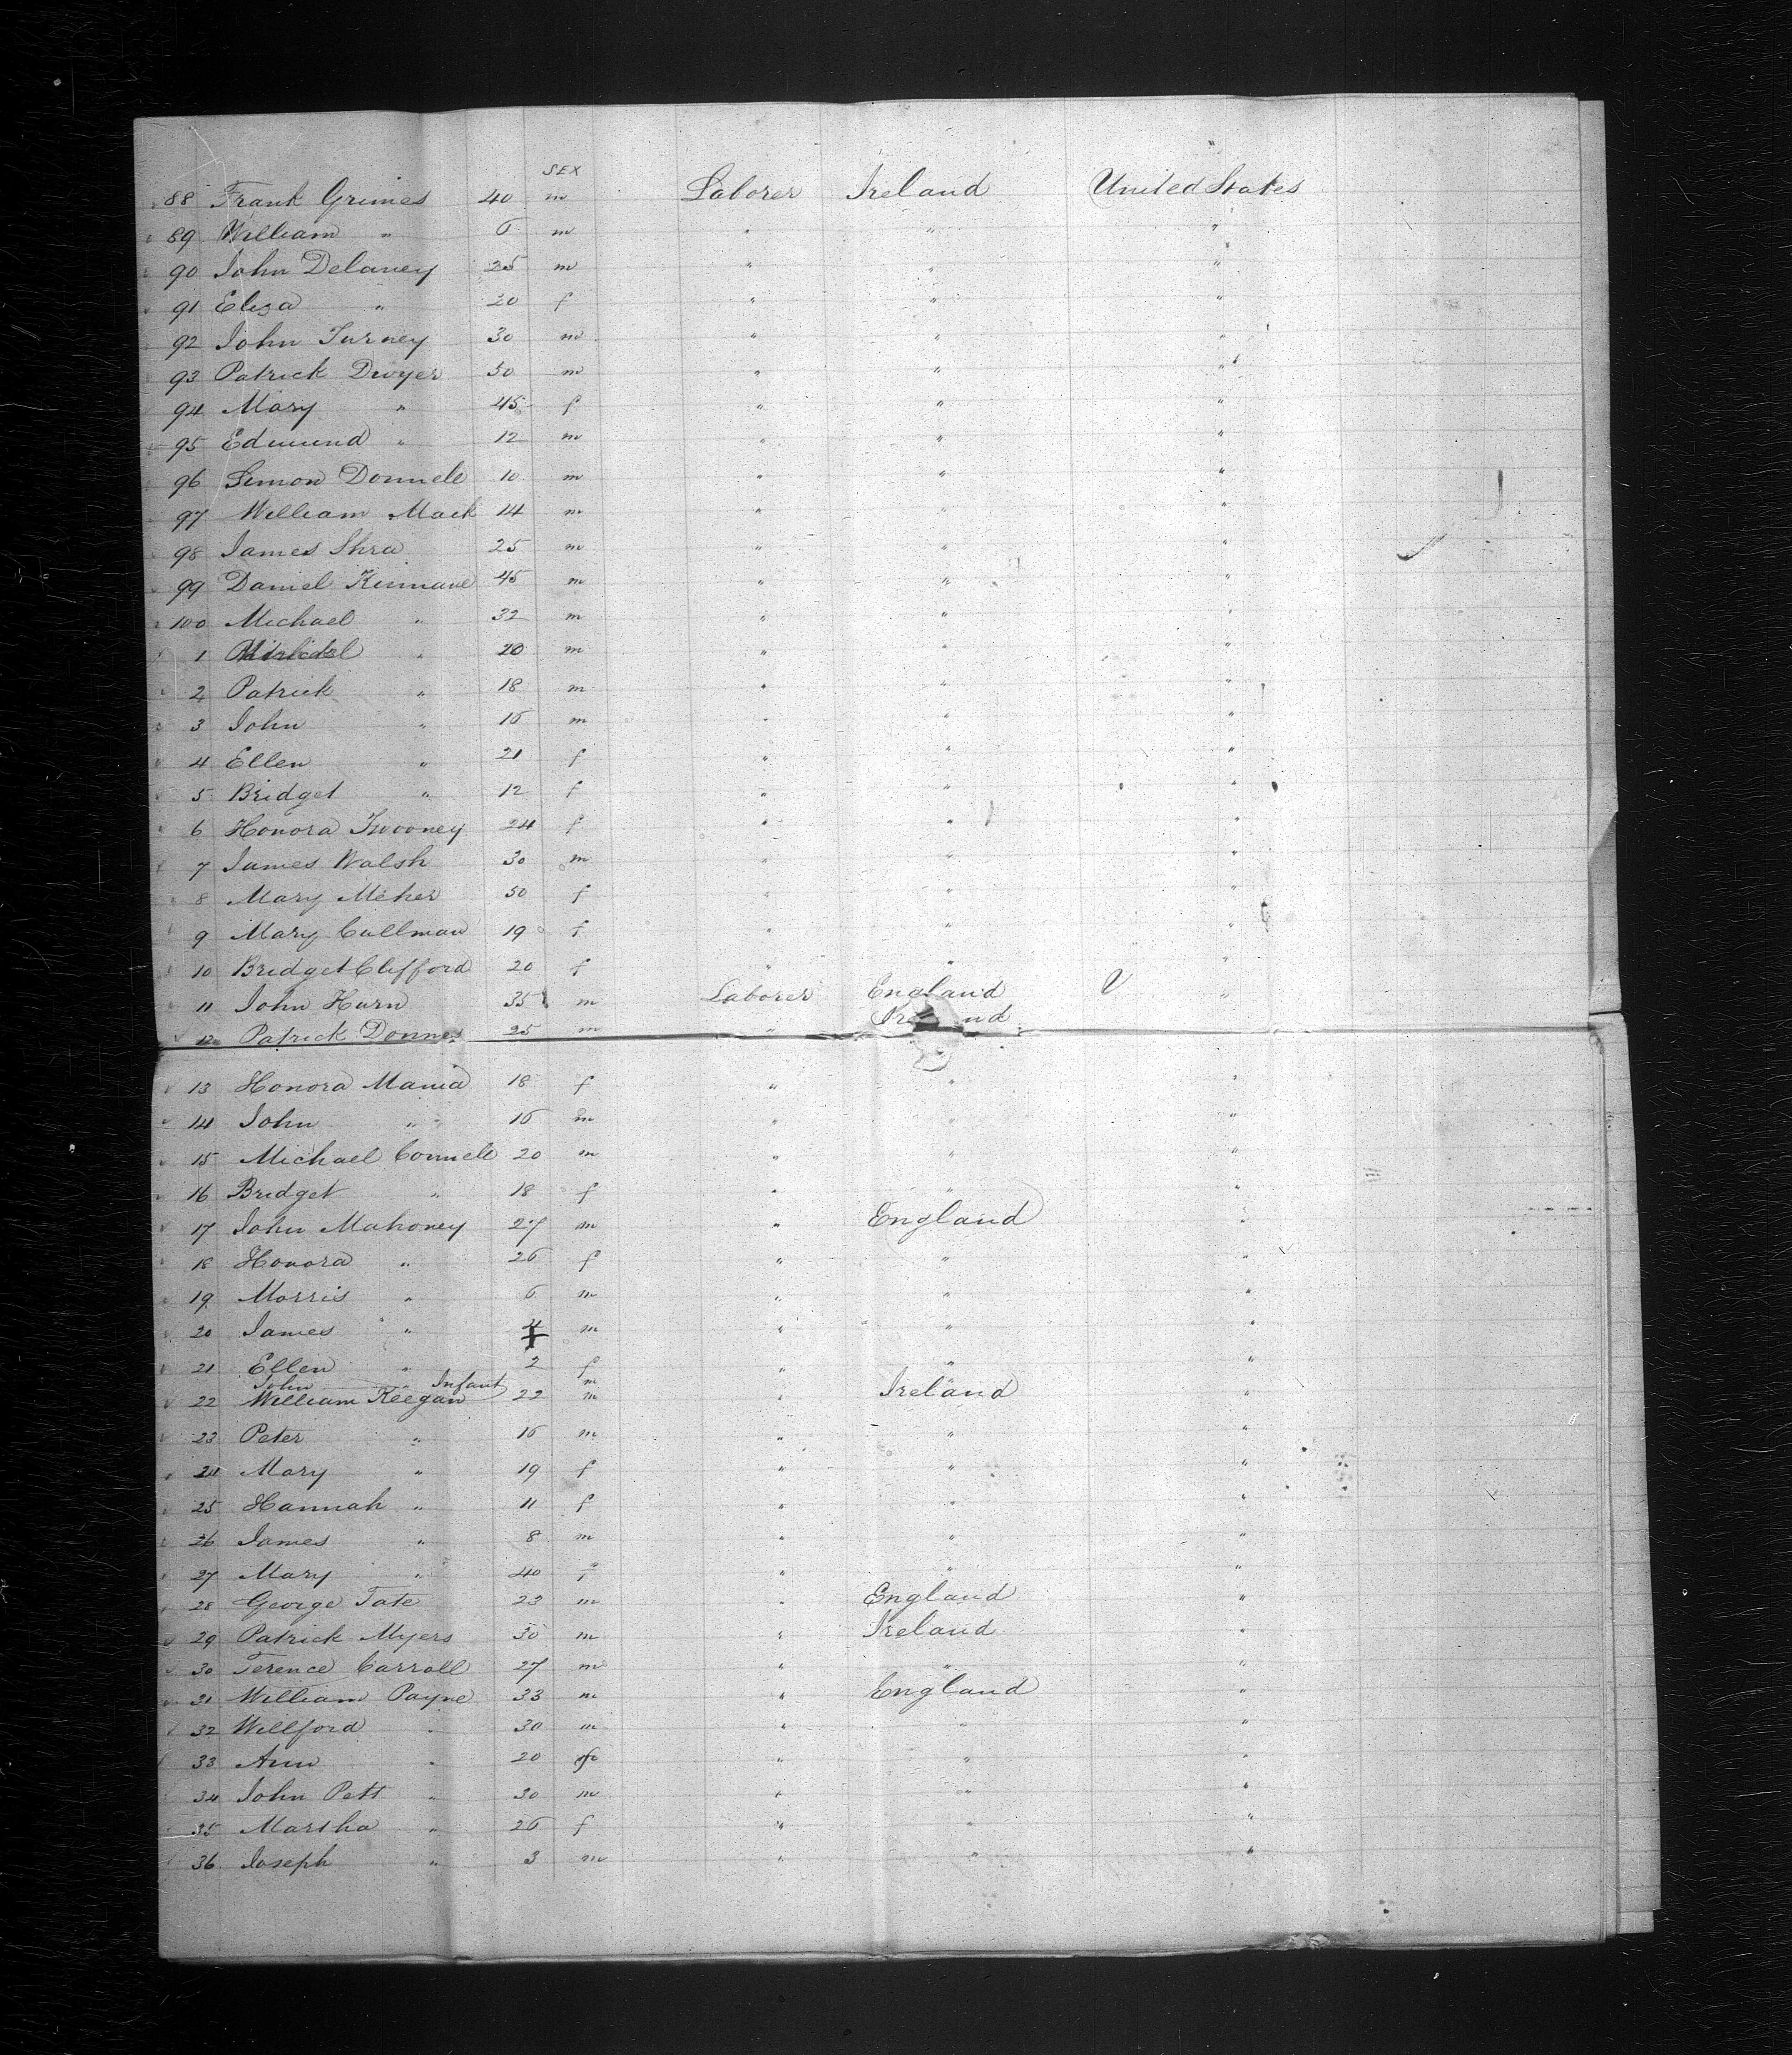 SEX
88 Frank Grimes 40 m Laborer Ireland United States
89 William " 6 m " " "
90 John Delaney 25 m " " "
91 Eliza " 20 f " " "
92 John Turney 30 m " " "
93 Patrick Dwyer 50 m " " "
94 Mary " 45 f " " "
95 Edmund " 12 m " " "
96 Simon Donnell 10 m " " "
97 William Mack 14 m " " "
98 James Shra 25 m " " "
99 Daniel Kinnane 45 m " " "
100 Michael " 32 m " " "
1 " 20 m " " "
2 Patrick " 18 m " " "
3 John " 16 m " " "
4 Ellen " 21 f " " "
5 Bridget " 12 f " " "
6 Honora Twooney 24 f " " "
7 James Walsh 30 m " " "
8 Mary Meher 50 f " " "
9 Mary Cullman 19 f " " "
10 Bridget Clifford 20 f " " "
11 John Hurn 35 m Laborer England "
12 Patrick Donnes 25 m " Ireland
13 Honora Mania 18 f " " "
14 John " 16 m " " "
15 Michael Connell 20 m " " "
16 Bridget " 18 f " " "
17 John Mahoney 27 m " England "
18 Honora " 26 f " " "
19 Morris " 6 m " " "
20 James " 4 m " " "
21 Ellen " 2 f " " "
John " Infant m "
22 William Keegan 22 m " Ireland "
23 Peter " 16 m " " "
24 Mary " 19 f " " "
25 Hannah " 11 f " " "
26 James " 8 m " " "
27 Mary " 40 f " " "
28 George Tate 23 m " England "
29 Patrick Myers 30 m " Ireland "
30 Terence Carroll 27 m " " "
31 William Payne 33 m " England "
32 Willford " 30 m " " "
33 Ann " 20 f " " "
34 John Pett " 30 m " " "
35 Martha " 26 f " " "
36 Joseph " 3 m " " "